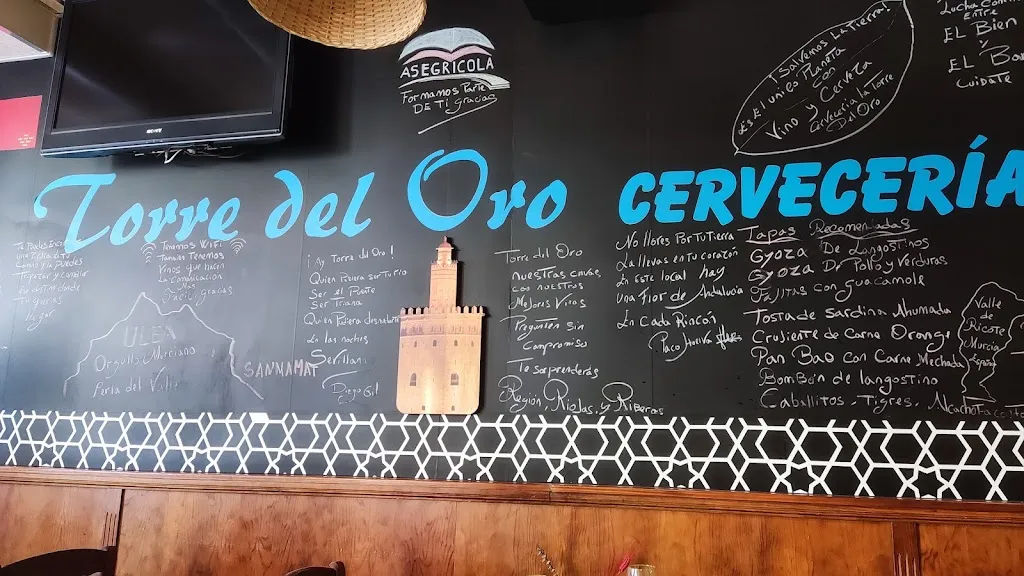 ASEGRICOLA
Formamos Parte
DE Ti Gracias
¡Salvemos La Tierra!
es El unico Planeta
con
Vino y Cerveza
Cerveceria la Torre
Del Oro
Lucha
Entre
EL Bien
y
EL
Cuidate
Torre del Oro CERVECERÍA
Tenemos WiFi
También Tenemos
Vinos que hacen
La comunicación
Más
Fácil gracias
ULEA
Orgullo Murciano
Perla del Valle
SANNAMAT
¡Ay Torre del Oro!
Quien Pudiera ser Turrio
Ser el Puente
Ser Triana
Quien Pudiera
En las noches
Sevillanas
Torre del Oro
nuestras cavas
con nuestros
Mejores Vinos
Pregunten sin
Compromiso
Te sorprenderás
Región, Riojas, y Riberas
No llores Por Tu Tierra
La llevas en tu corazón
En este local hay
Una Flor de Andalucía
En Cada Rincón
Paco
Tapas Recomendadas
Gyoza De Langostinos
Gyoza De Pollo y Verduras
Fajitas con guacamole
Tosta de Sardina Ahumada
Crujiente de Carne Orange
Pan Bao con Carne Mechada
Bombón de langostino
Caballitos, Tigres,
Valle
de
Ricote
Murcia
España